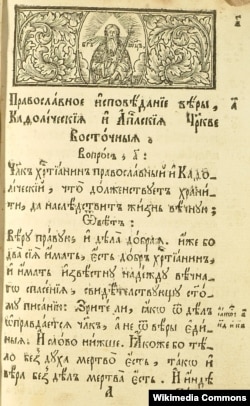 БГЪ ОЦЪ
Православное исповѣданїе вѣры,
Каѳолїческїѧ и Аⷫ҇лскїѧ Цр҃кве
Восточныѧ
Вопросъ, а҃:
Члк҃ъ хрⷭ҇тїанинъ православный и Каѳо-
лїческїй, что долженствуетъ храни-
ти, да наслѣдствитъ жизнь вѣчную;
Ѿвѣтъ:
Вѣру правую, и дѣла добраѧ. иже бо
два сїѧ имать, есть добръ хрⷭ҇тїанинъ,
и имать извѣстну надежду вѣчна-
гѡ спасенїѧ, свидѣтелствующу ст҃о-
му писанїю: Зрите ли, ꙗкѡ ѿ дѣлъ
ѡправдаетсѧ члк҃ъ, а не ѿ вѣры еди-
ныѧ. И ѡ мало нижше. Ꙗкоже бо тѣ-
ло безъ духа мертво есть, такѡ и
вѣра безъ дѣлъ мертва есть. И индѣ
Wikimedia Commons